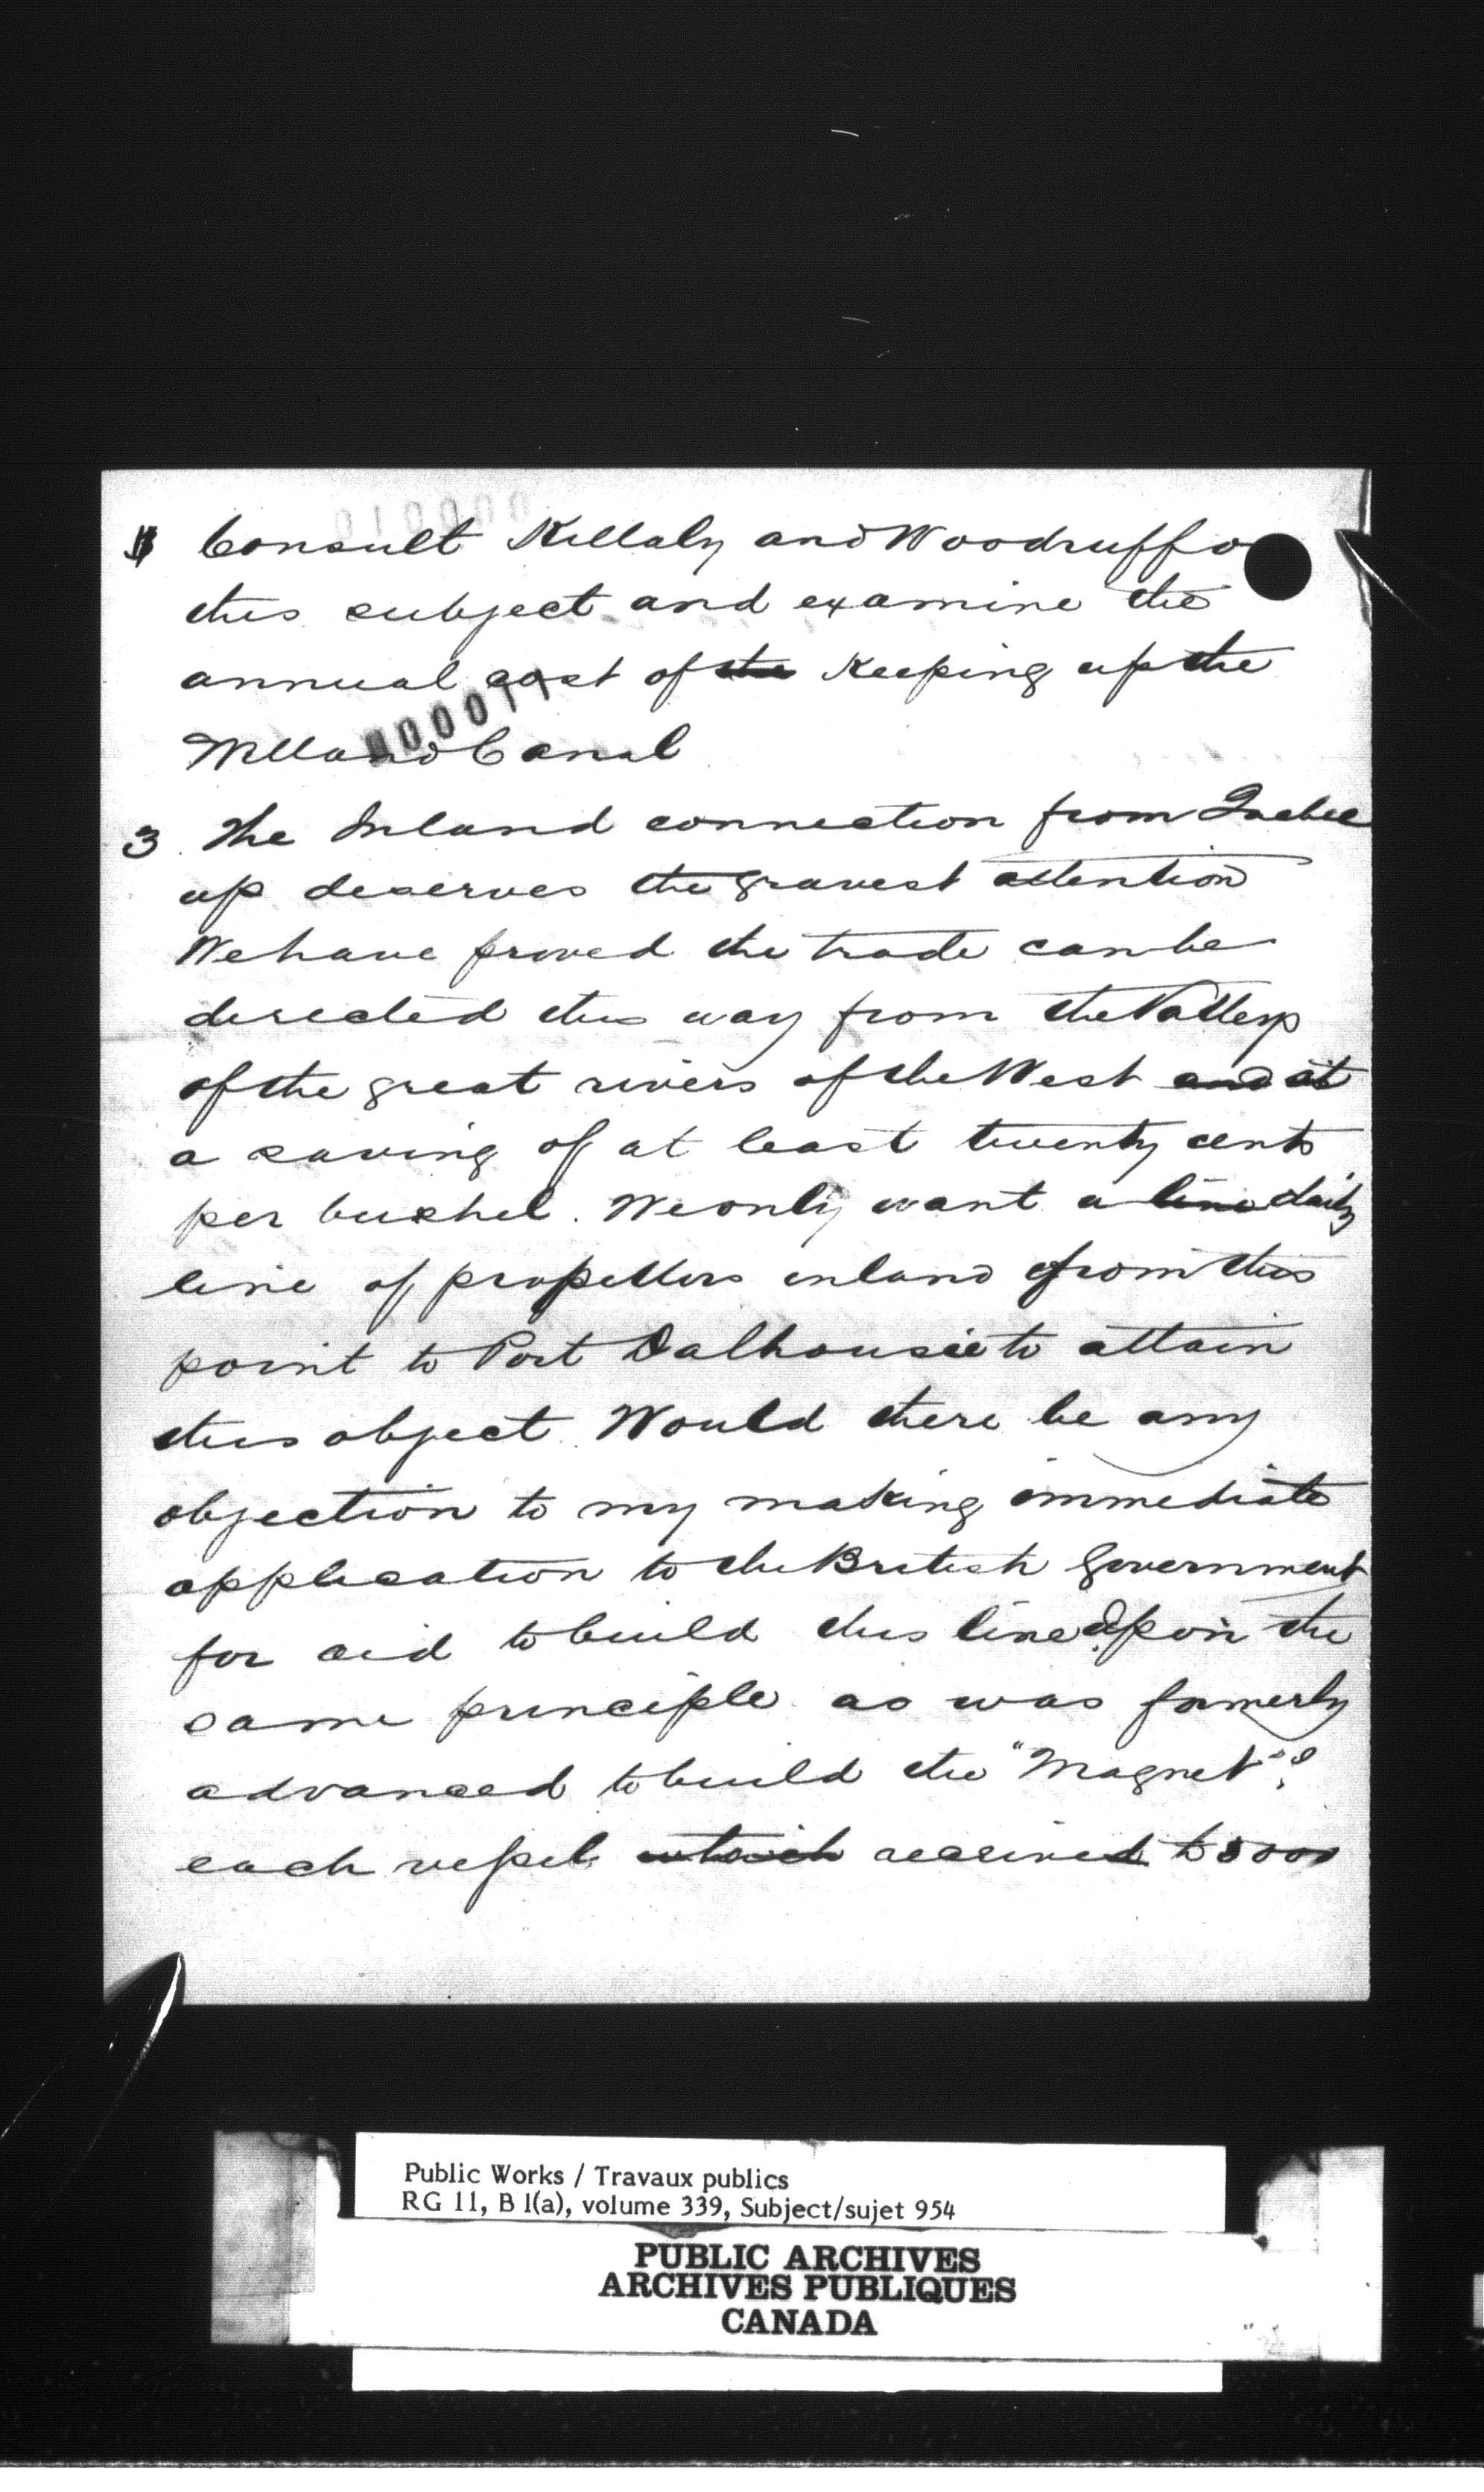 Consult Killaly and Woodruff o
this subject and examine the
annual cost of the Keeping up the
000011
Welland Canal
3. The Inland connection from Quebec
up deserves the gravest attention
We have proved the trade can be
directed this way from the Valleys
of the great rivers of the West and at
a saving of at least twenty cents
per bushel. We only want a line daily
line of propellers inland from this
point to Port Dalhousie to attain
this object. Would there be any
objection to my making immediate
application to the British government
for aid to build this line upon the
same principle as was formerly
advanced to build the "Magnet"?
each vessel which received 5000
Public Works / Travaux publics
RG 11, B 1(a), volume 339, Subject/sujet 954
PUBLIC ARCHIVES
ARCHIVES PUBLIQUES
CANADA